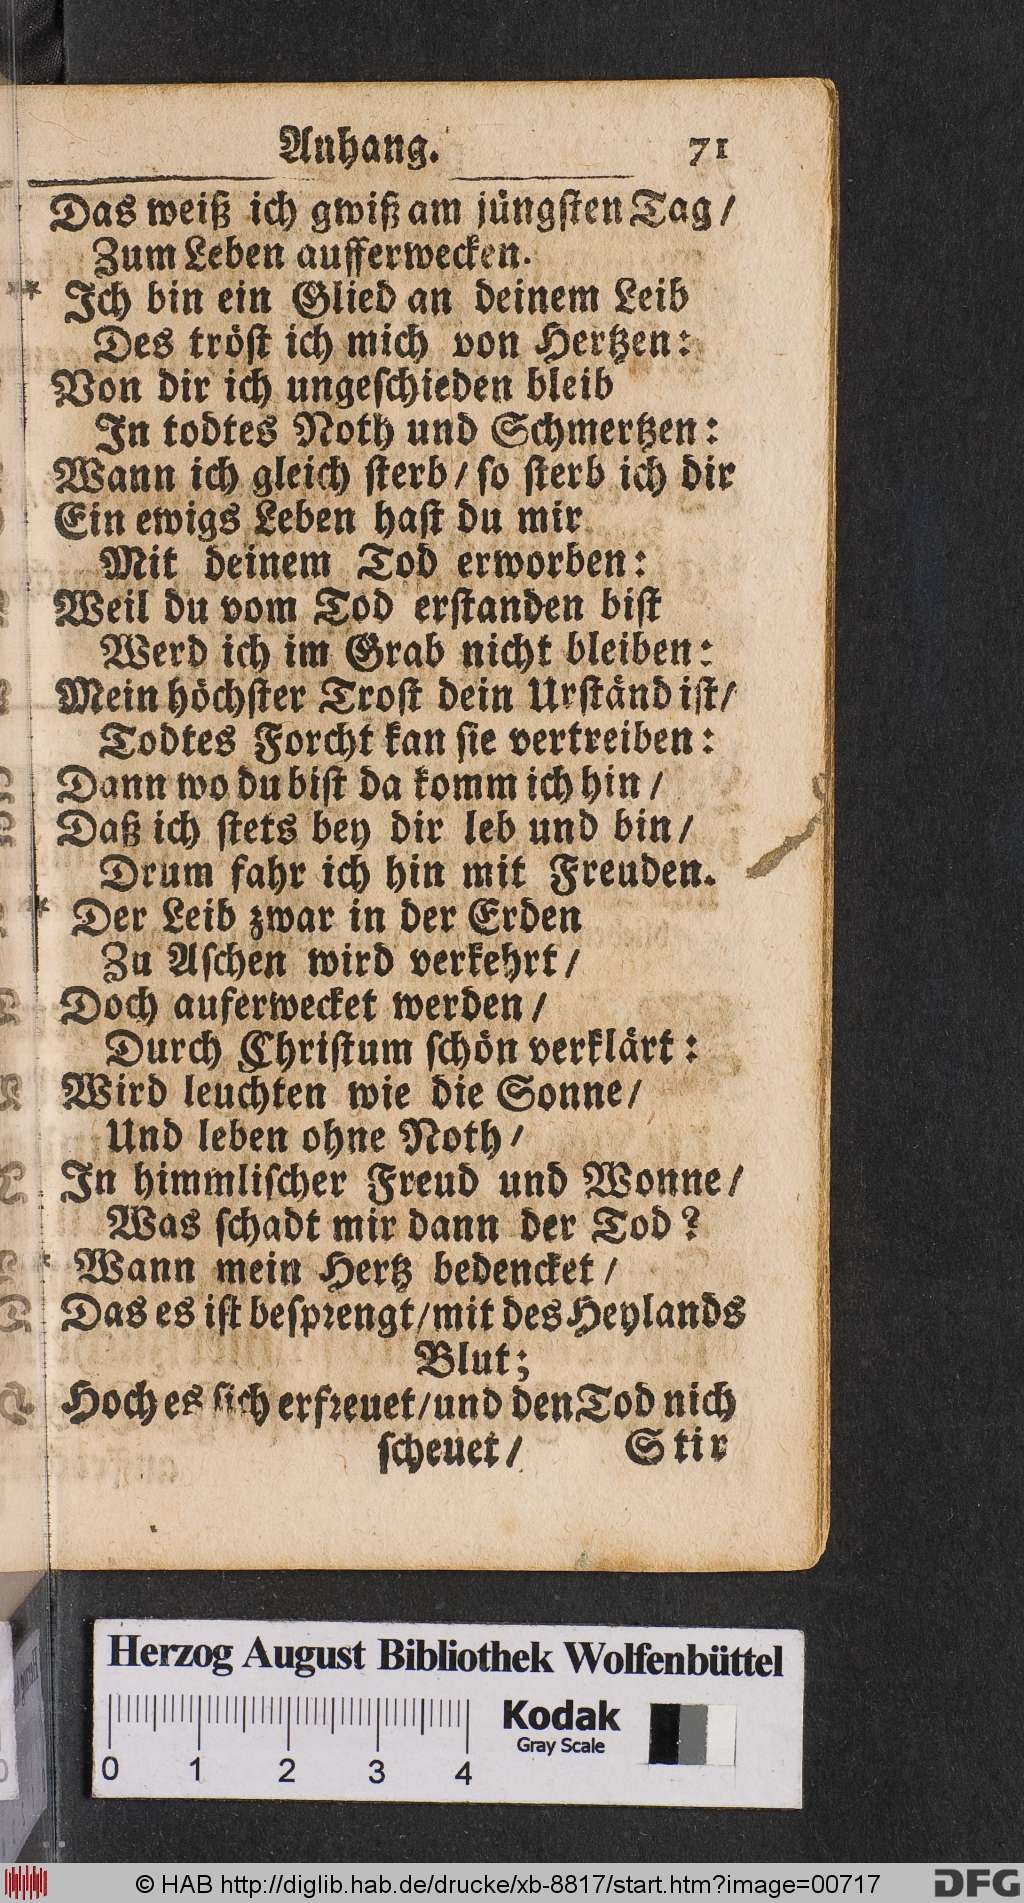 Anhang. 71
Das weiß ich gwiß am jüngsten Tag/
Zum Leben aufferwecken.
** Ich bin ein Glied an deinem Leib
Des tröst ich mich von Hertzen:
Von dir ich ungeschieden bleib
In todtes Noth und Schmertzen:
Wann ich gleich sterb/ so sterb ich dir
Ein ewigs Leben hast du mir
Mit deinem Tod erworben:
Weil du vom Tod erstanden bist
Werd ich im Grab nicht bleiben:
Mein höchster Trost dein Urständ ist/
Todtes Forcht kan sie vertreiben:
Dann wo du bist da komm ich hin/
Daß ich stets bey dir leb und bin/
Drum fahr ich hin mit Freuden.
* Der Leib zwar in der Erden
Zu Aschen wird verkehrt/
Doch auferwecket werden/
Durch Christum schön verklärt:
Wird leuchten wie die Sonne/
Und leben ohne Noth/
In himmlischer Freud und Wonne/
Was schadt mir dann der Tod?
* Wann mein Hertz bedencket/
Das es ist besprengt/mit des Heylands
Blut;
Hoch es sich erfreuet/und den Tod nich
scheuet/ Stir
Herzog August Bibliothek Wolfenbüttel
Kodak
Gray Scale
0 1 2 3 4
© HAB http://diglib.hab.de/drucke/xb-8817/start.htm?image=00717
DFG